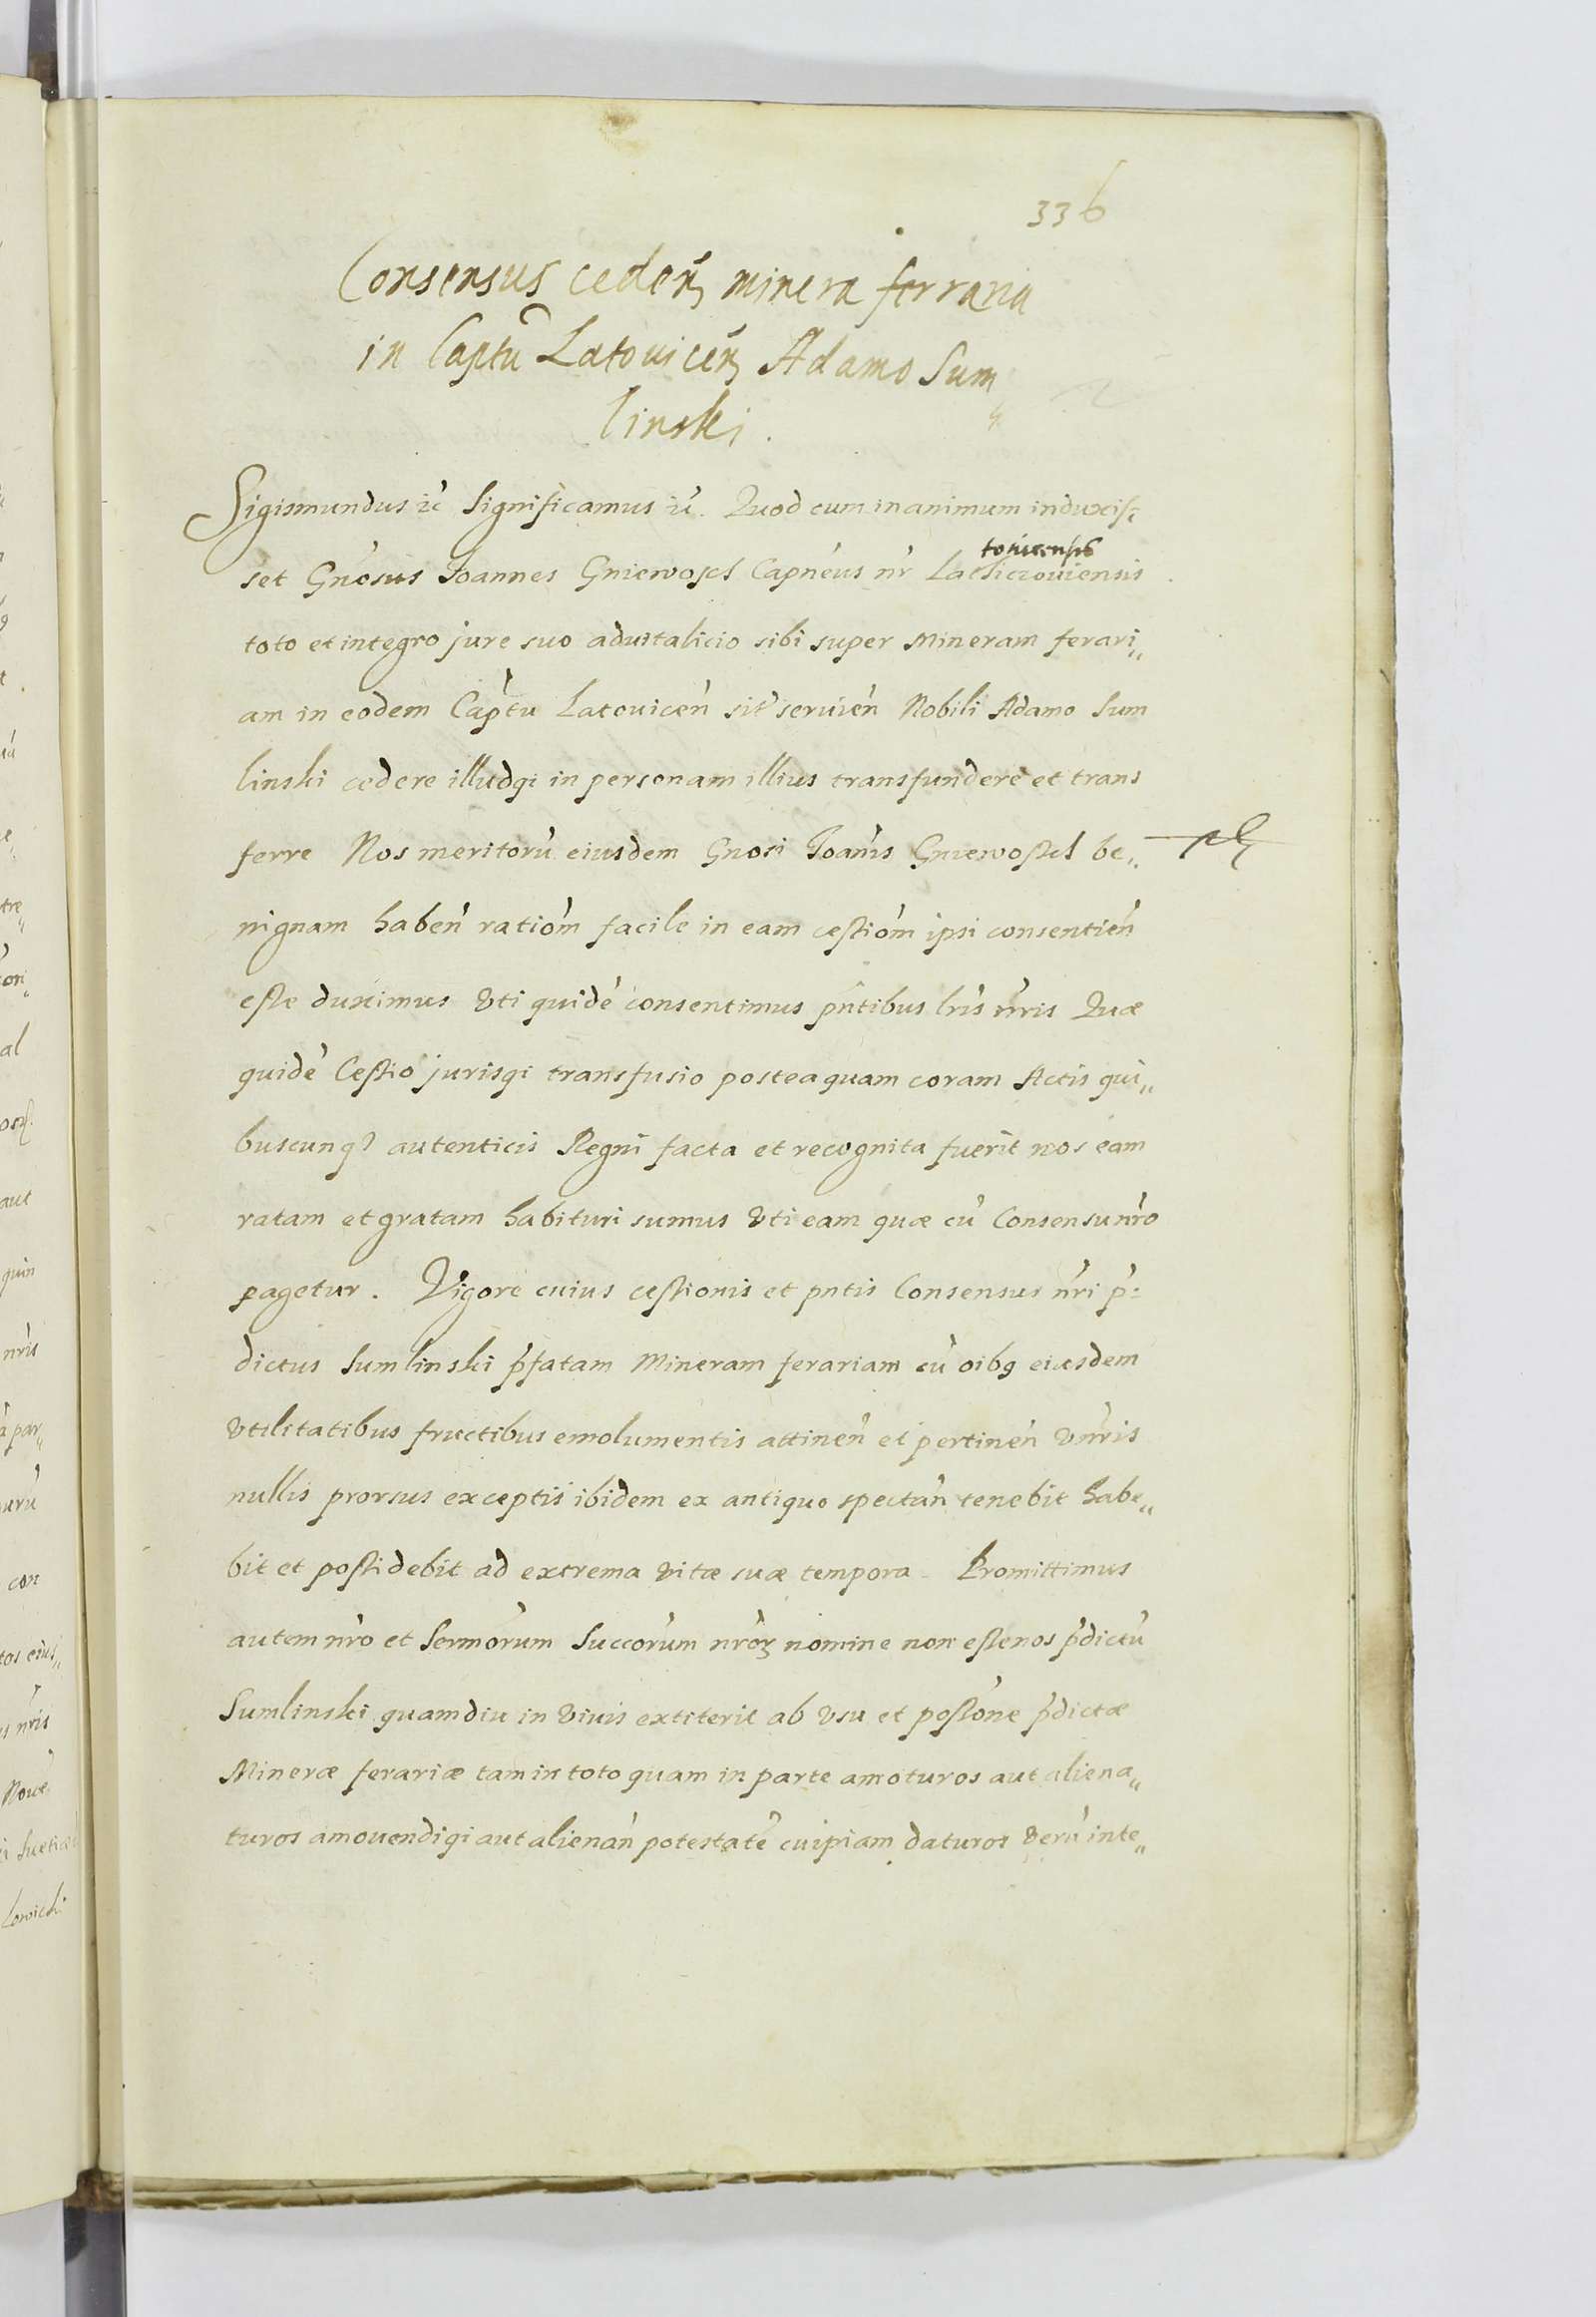 336
Consensus ceden minera ferraria
in Captu Latouicen Adamo Sum
linski.
Sigismundus ec Significamus ec. Quod cum in animum induxis=
set Gnosus Joannes Gniewosz Capneus nr Laticzouiensis
touicensis
toto et integro jure suo aduitalicio sibi super Mineram ferari„
am in eodem Captu Latouicen sit seruien Nobili Adamo Sum
linski cedere illudq; in personam illius transfundere et trans
ferre Nos meritorū eiusdem Gnosi Joanis Gniewoszel be„
nignam haben ratiom facile in eam cessiom ipsi consentien
esse duximus vti quidē consentimus pntibus lris nris Quæ
quidē Cessio jurisq; transfusio posteaquam coram Actis qui„
buscunq; autenticis Regni facta et recognita fuerit nos eam
ratam et gratam habituri sumus vti eam quæ cū Consensu nro
pagetur. Vigore cuius cessionis et pntis Consensus nri p=
dictus Sumlinski pfatam Mineram ferariam cū oibq eiusdem
vtilitatibus fructibus emolumentis attinen et pertinen vnris
nullis prorsus exceptis ibidem ex antiquo spectan tenebit habe„
bit et possidebit ad extrema vitæ suæ tempora. Promittimus
autem nro et Sermorum Succorum nror nomine non esse nos pdictū
Sumlinski quamdiu in viuis extiterit ab vsu et possone pdictæ
Mineræ ferariæ tam in toto quam in parte amoturos aut aliena„
turos amouendiq; aut alienan potestatē cuipiam daturos verū inte„